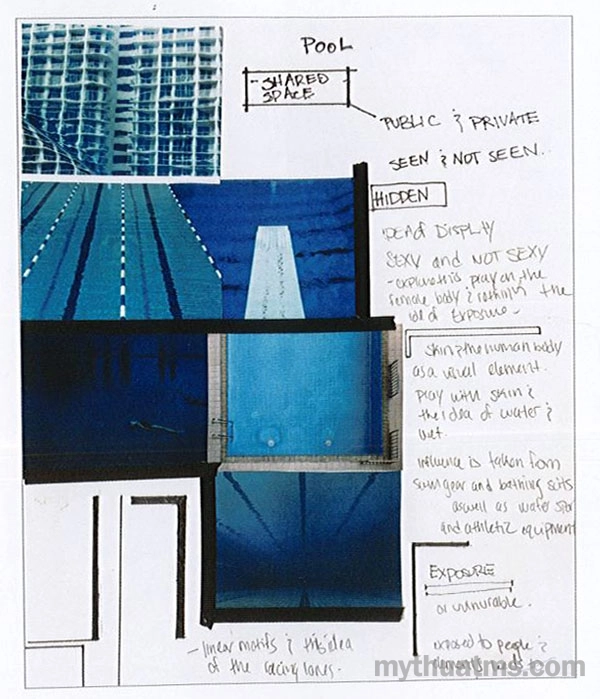 POOL
- SHARED
SPACE
PUBLIC & PRIVATE
SEEN & NOT SEEN..
HIDDEN
DISPLAY
SEXY and NOT SEXY
- play on the
female body & the
idea of Exposure -
skin & the human body
as a visual element.
play with skin &
the idea of water &
wet.
influence is taken from
swim gear and bathing suits
aswell as water
and athletic equipment
EXPOSURE
or vulnurable.
exposed to people &
- linear motifs & this idea
of the racing lanes.
mythuatms.com